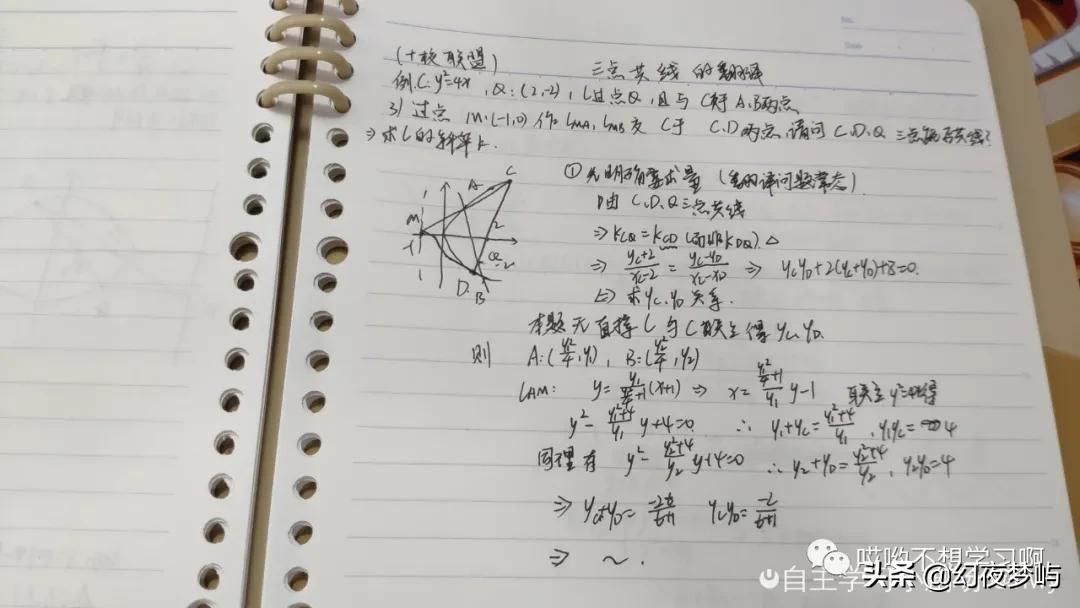 No.
Date
(十校联盟) 三点共线的翻译
例.C: y²=4x, Q:(2,-2), l过点Q,且与C交于A.B两点
3) 过点 M(-1,0)作 lMA, lMB交C于 C.D两点,请问C.D.Q三点能否共线?
⇒求l的斜率k.
①先明确要求量(翻译问题常态)
由C.D.Q三点共线
⇒ kCQ=kCD (而非kDQ).△
⇒ (yC+2)/(xC-2) = (yC-yD)/(xC-xD) ⇒ yCyD+2(yC+yD)+8=0.
⇒求yC.yD关系.
C
A
M
1
-1
2
Q
-2
1
D.B
本题无直接l与C联立得yC.yD.
则 A:(y₁²/4,y₁), B:(y₂²/4,y₂)
lAM: y=y₁/(y₁²/4+1)(x+1) ⇒ x=(y₁²/4+1)/y₁ y-1 联立y²=4x得
y²-(y₁²+4)/y₁ y+4=0 ∴ y₁+yC=(y₁²+4)/y₁, y₁yC=4
同理有 y²-(y₂²+4)/y₂ y+4=0 ∴ y₂+yD=(y₂²+4)/y₂, y₂yD=4
⇒ yC+yD= yCyD=
⇒ ~.
哎哟不想学习啊
自主学
头条@幻夜梦屿